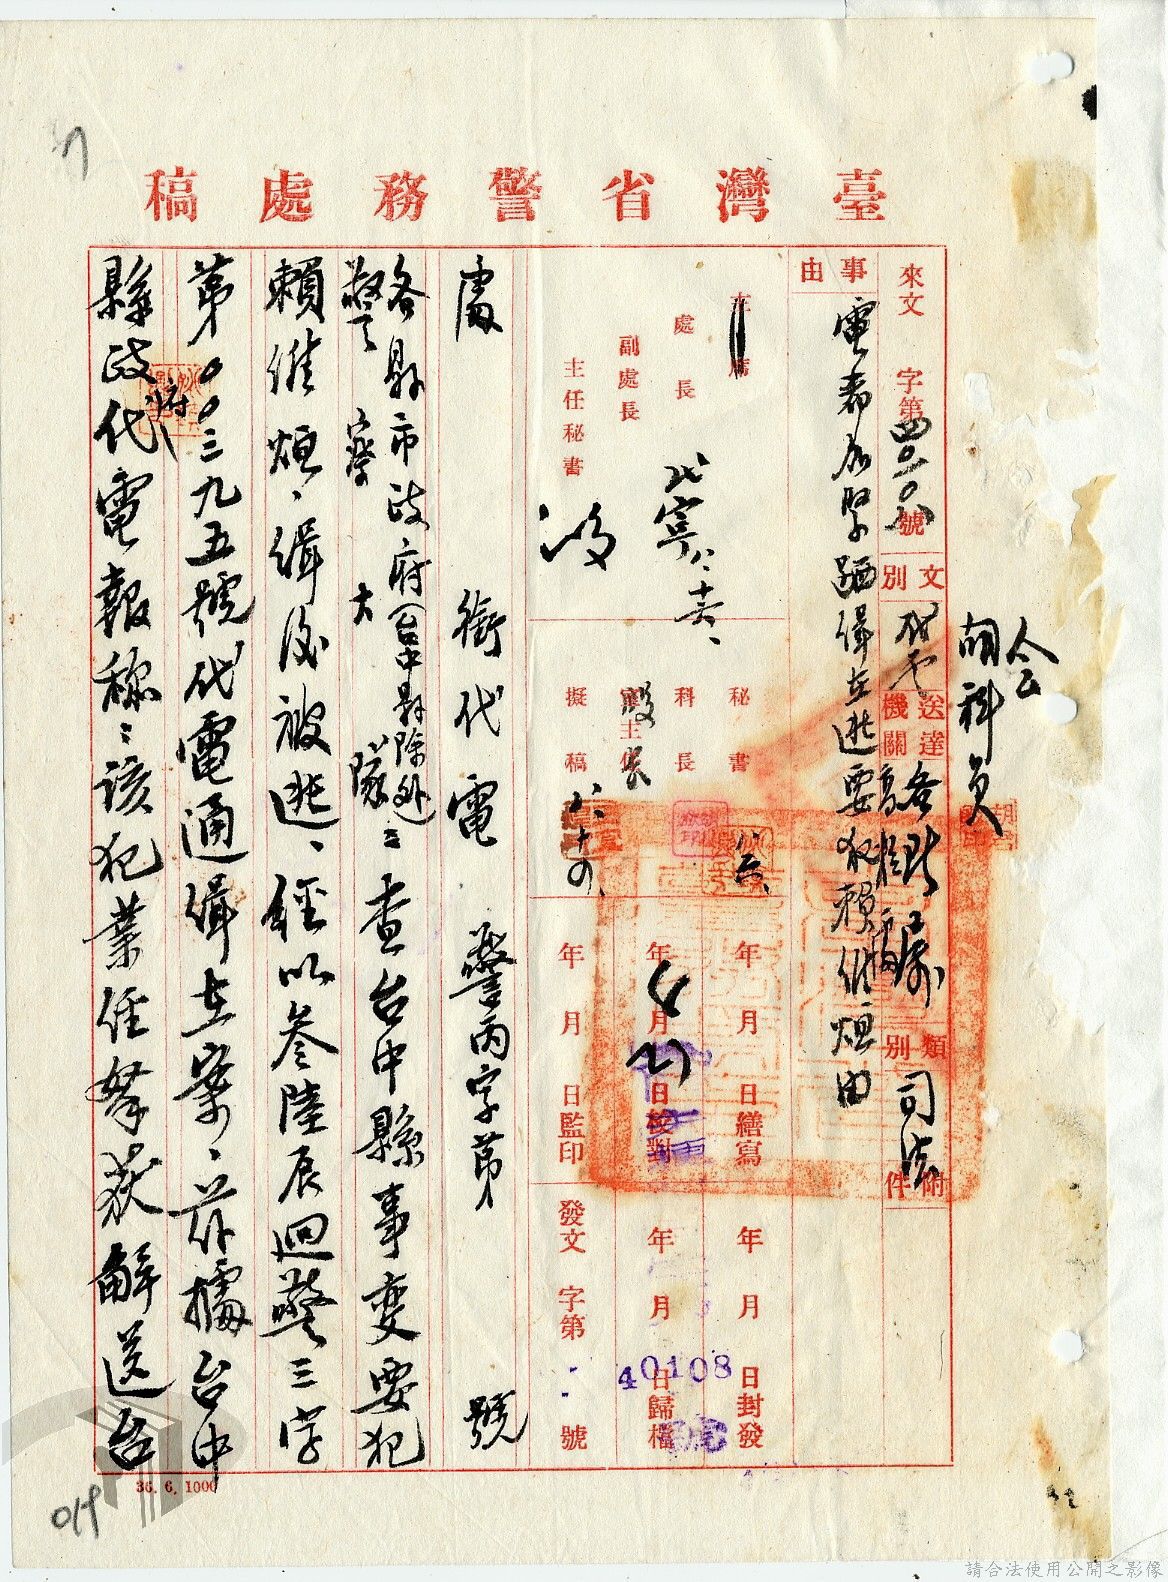 臺灣省警務處稿
來文 字第四〇一〇八號
文別 代電
送達機關 各縣市
類別 司法
附件
事由
電希加緊跴緝在逃要犯賴維烜由
會
胡科員
主席
處長
副處長
主任秘書
秘書
科長
室主任
擬稿
八、十四、
年 月 日繕寫
年 月 日校對
年 月 日監印
年 月 日封發
年 月 日歸檔
發文 字第 號
40108
處 銜代電 警丙字第 號
各縣市政府(台中縣除外)
警察大隊:查台中縣事變要犯
賴維烜、緝後被逃、經以叁陸辰迴警三字
第〇〇三九五號代電通緝在案、茲據台中
縣政府代電報稱:該犯業經拏获解送台
36. 6. 1000
019
請合法使用公開之影像